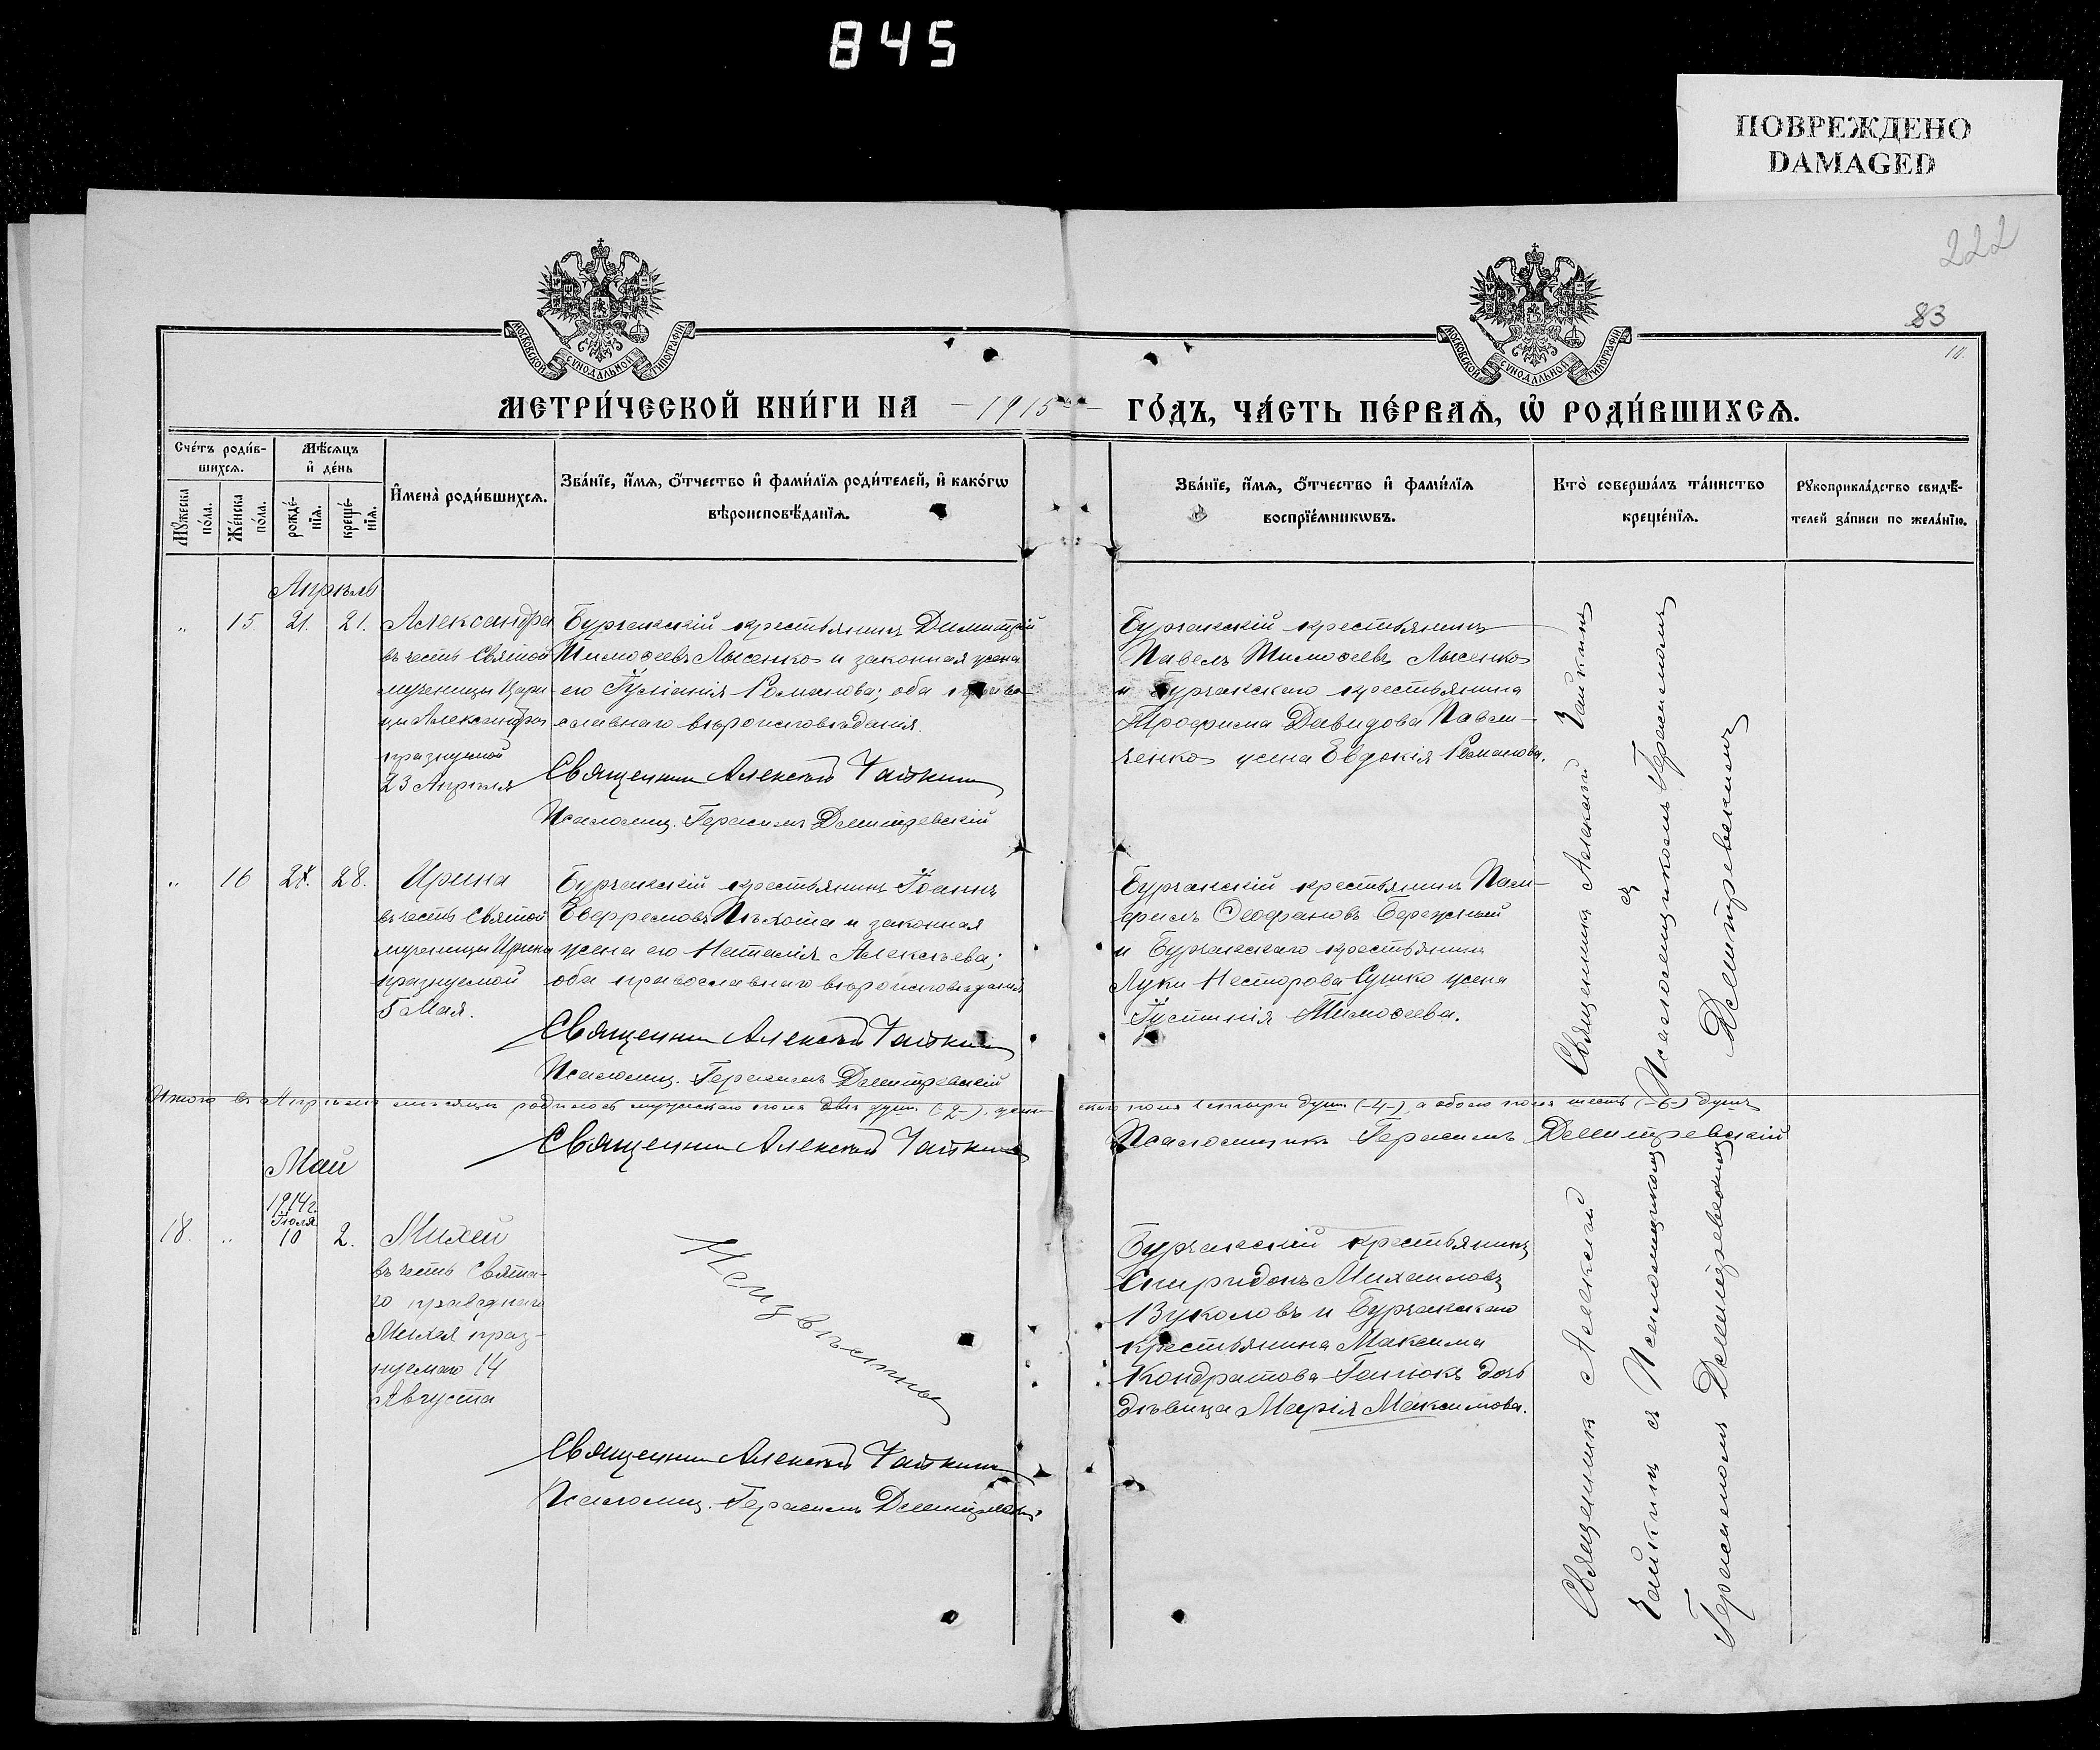 845
ПОВРЕЖДЕНО
DAMAGED
222
83
10.
МОСКОВСКОЙ СѴНОДАЛЬНОЙ ТИПОГРАФІИ
МОСКОВСКОЙ СѴНОДАЛЬНОЙ ТИПОГРАФІИ
МЕТРИ́ЧЕСКОЙ КНИ́ГИ НА —1915— ГО́ДЪ, ЧА́СТЬ ПЕ́РВАѦ, Ѡ҆ РОДИ́ВШИХСѦ.
Сче́тъ роди́в-
шихся.
Мѣ́сяцъ
и҆ де́нь
Мꙋ́жеска
по́ла.
Же́нска
по́ла.
рожде́-
нїѧ.
креще́-
нїѧ.
И҆мена̀ роди́вшихсѧ.
Зва́нїе, и҆́мѧ, ѻ҆́тчество и҆ фами́лїѧ роди́телей, и҆ како́гѡ
вѣроисповѣ́данїѧ.
Зва́нїе, и҆́мѧ, ѻ҆́тчество и҆ фами́лїѧ
воспрїе́мникѡвъ.
Кто̀ соверша́лъ та́инство
креще́нїѧ.
Рꙋкоприкла́дство свидѣ́-
телей за́писи по жела́нїю.
Апрѣль
„ 15. 21. 21. Александра
въ честь Святой
мученицы Цари-
цы Александры
празнуемой
23 Апрѣля
Бурчакскій крестьянинъ Димитрій
Тимофеевъ Лысенко и законная жена
его Іуліанія Романова; оба право-
славнаго вѣроисповѣданія.
Священникъ Алексѣй Чайкинъ
Псаломщ. Герасимъ Дмитревскій
Бурчакскій крестьянинъ
Павелъ Тимофеевъ Лысенко
и Бурчакскаго крестьянина
Трофима Давидова Павли-
ченко жена Евдокія Романова.
Священникъ Алексѣй Чайкинъ
съ
Псаломщикомъ Герасимомъ
Дмитревскимъ
„ 16 27. 28. Ирина
въ честь Святой
мученицы Ирины
празнуемой
5 Мая.
Бурчакскій крестьянинъ Іоаннъ
Евфремовъ Пѣхота и законная
жена его Наталія Алексѣева;
оба православнаго вѣроисповѣданія
Священникъ Алексѣй Чайкинъ
Псаломщ. Герасимъ Дмитревскій
Бурчакскій крестьянинъ Пам-
филъ Феофановъ Бережный
и Бурчакскаго крестьянина
Луки Несторова Сушко жена
Іустинія Тимофеева.
Итого въ Апрѣлѣ мѣсяцѣ родилось мужскаго пола двѣ души (-2-), жен-
скаго пола четыре души (-4-), а обоего пола шесть (-6-) душъ
Священникъ Алексѣй Чайкинъ
Псаломщикъ Герасимъ Дмитревскій
Май
1914 г.
Іюля
18. „ 10 2. Михей
въ честь Свята-
го праведнаго
Михея праз-
нуемаго 14
Августа
Неизвѣстны
Священникъ Алексѣй Чайкинъ
Псаломщ. Герасимъ Дмитревскій
Бурчакскій крестьянинъ
Спиридонъ Михаиловъ
Вуколовъ и Бурчакскаго
крестьянина Максима
Кондратова Гапюкъ дочь
дѣвица Марія Максимова.
Священникъ Алексѣй
Чайкинъ съ Псаломщикомъ
Герасимомъ Дмитревскимъ